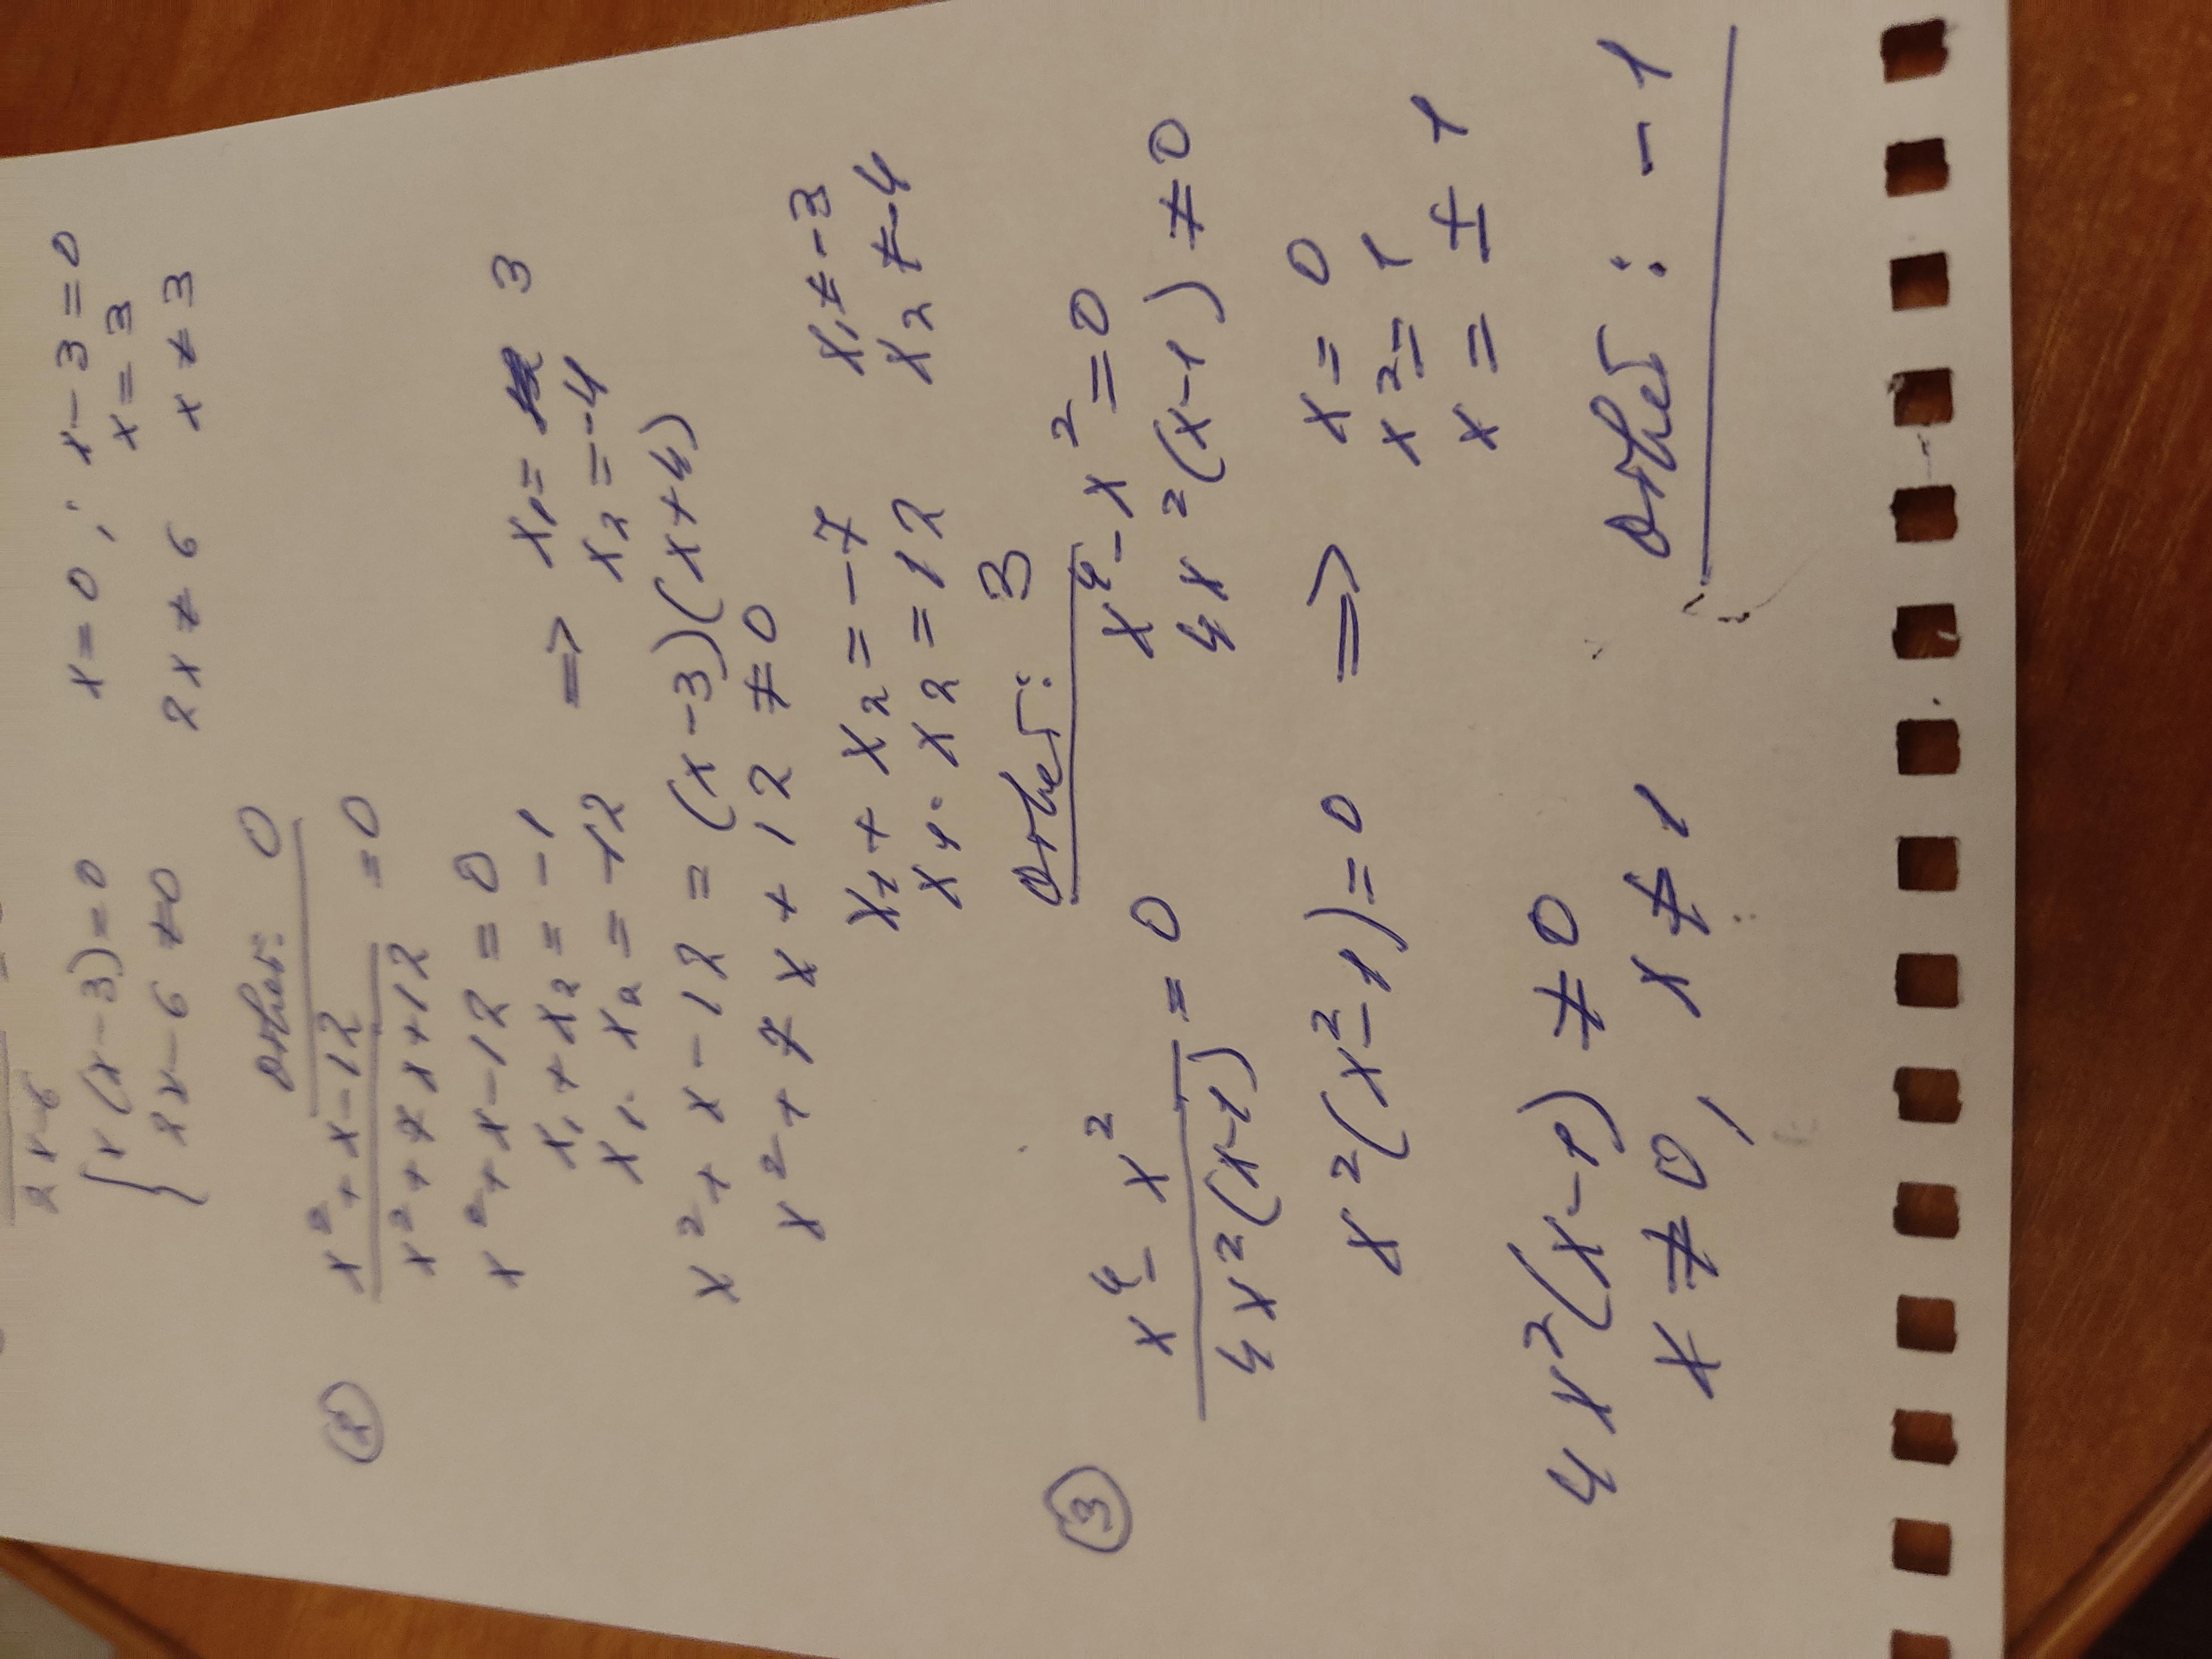 2x-6
{x(x-3)=0 x=0; x-3=0
x=3
2x-6≠0 2x≠6 x≠3
Ответ: 0
② x²+x-12 =0
x²+7x+12
x²+x-12=0
x₁+x₂=-1 => x₁= 3
x₁·x₂=-12 x₂=-4
x²+x-12=(x-3)(x+4)
x²+7x+12≠0
x₁+x₂=-7 x₁≠-3
x₁·x₂=12 x₂≠-4
Ответ: 3
③ x⁴-x² =0 x⁴-x²=0
4x²(x-1) 4x²(x-1)≠0
x²(x²-1)=0 => x=0
x²=1
x=±1
4x²(x-1)≠0
x≠0, x≠1
Ответ: -1